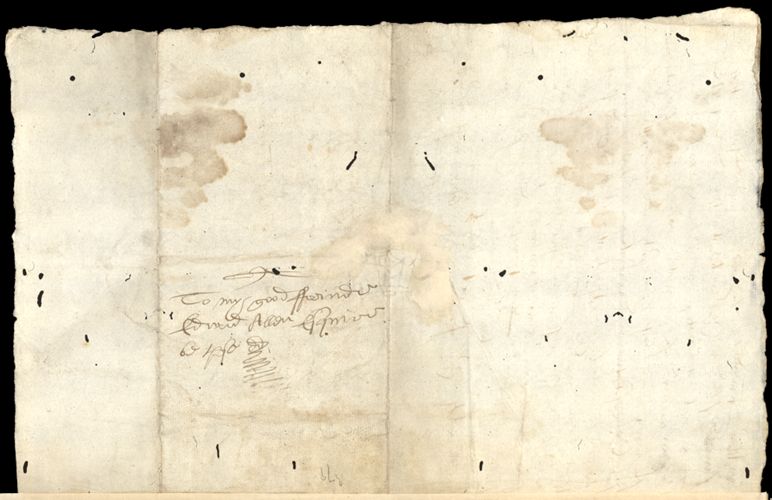 To my good ffreinde
Edward Allen Esquire